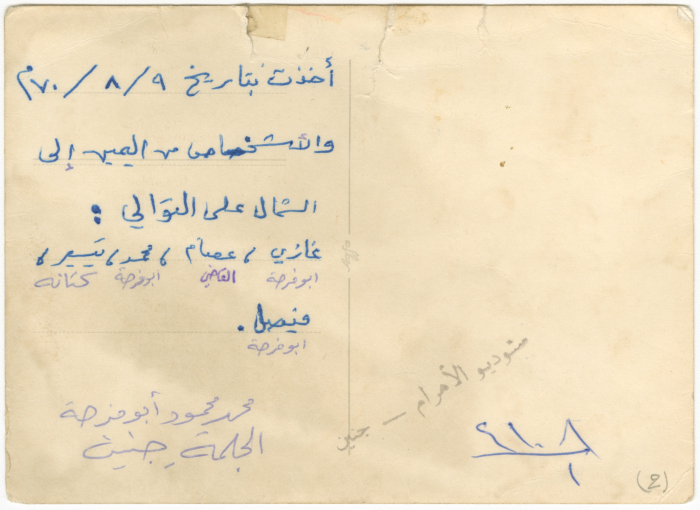 أخذت بتاريخ ٩ / ٨ / ٧٠م
والأشخاص من اليمين إلى
الشمال على التوالي :
غازي ، عصام ، محمد ، تيسير ،
ابوفرحة القاضي ابوفرحة كنانه
فيصل .
ابوفرحة
محمد محمود أبوفرحة
الجلمة جنين
ستوديو الأهرام — جنين
٢١٠٨
١
(2)